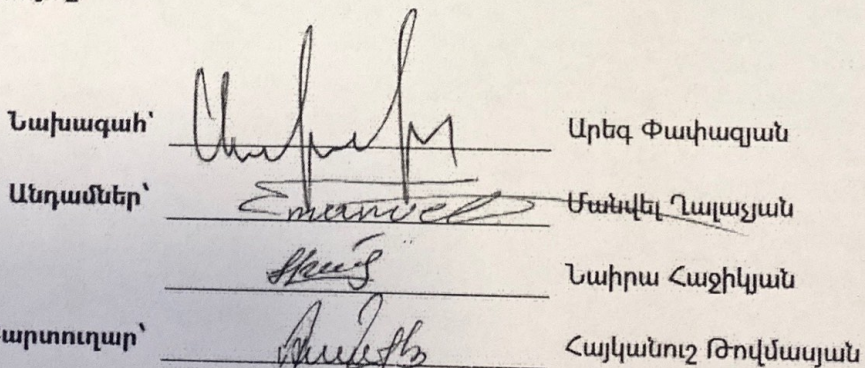 Նախագահ՝ Արեգ Փափազյան
Անդամներ՝ Emanuel Մանվել Ղալաչյան
Նաիրա Հաջիկյան
արտուղար՝ Հայկանուշ Թովմասյան